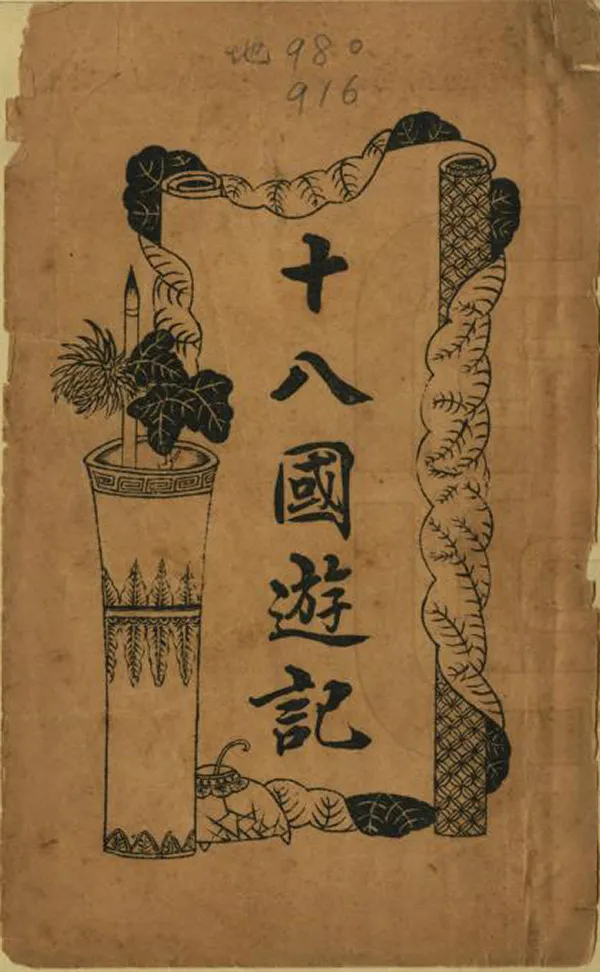 地980
916
十八國遊記